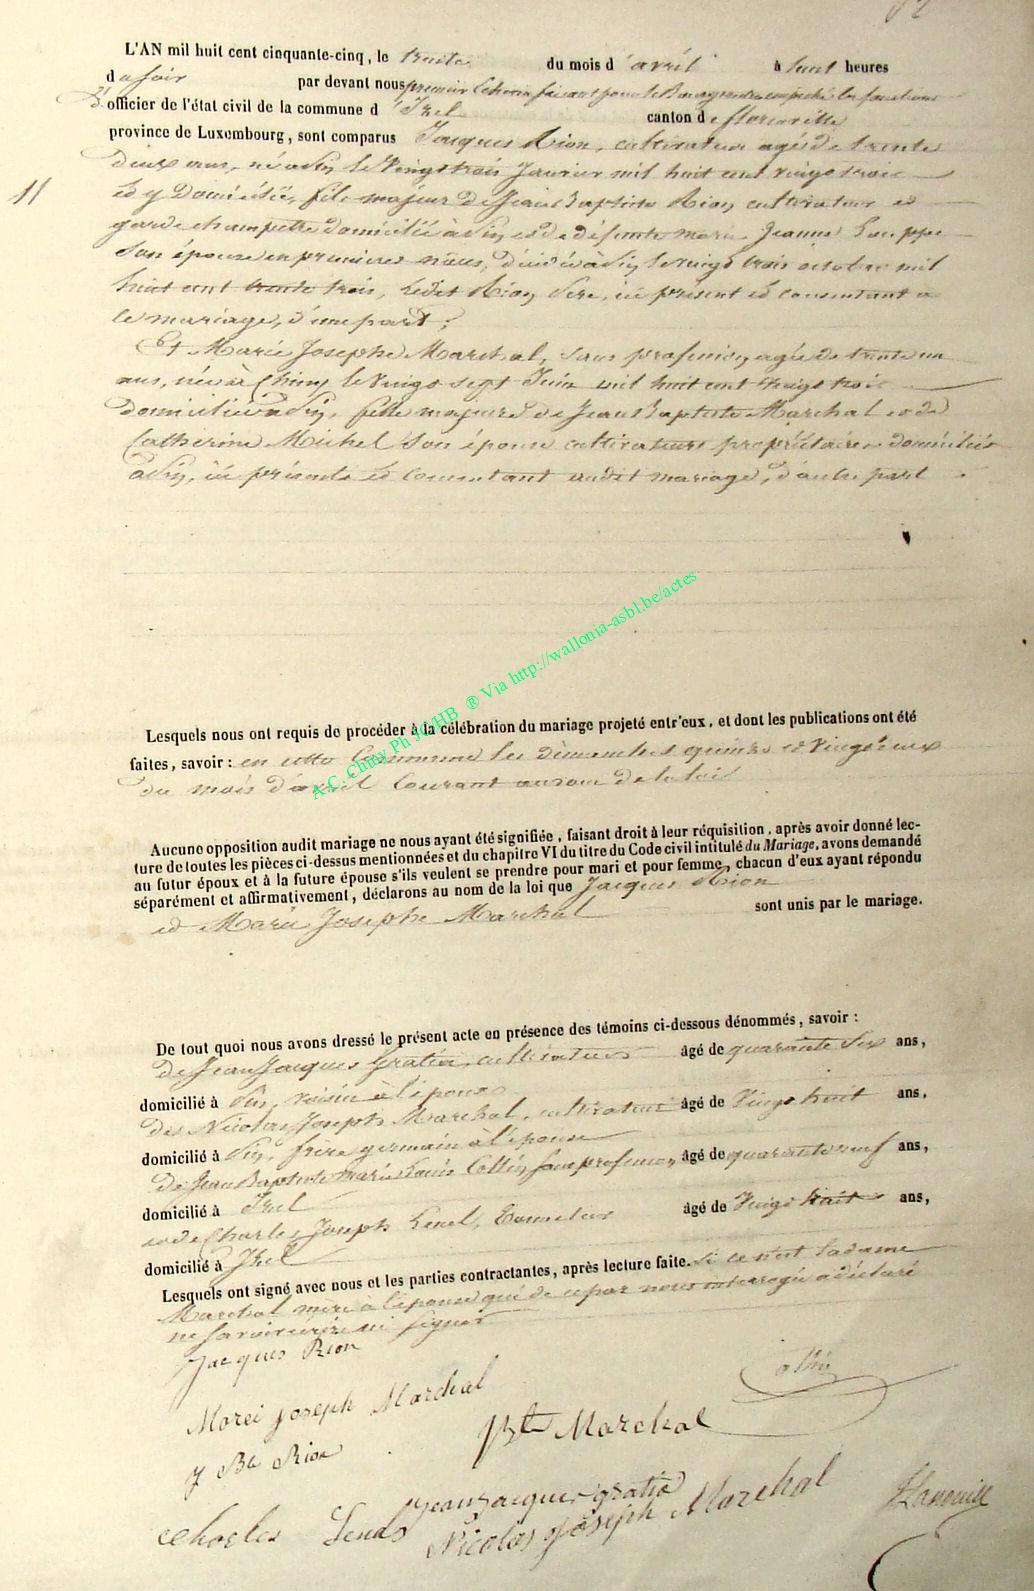 L'AN mil huit cent cinquante-cinq, le trente du mois d'avril à heures
du soir par devant nous premier Echevin faisant pour le Bourgmestre empêché les fonctions
d'officier de l'état civil de la commune d'Izel canton de florenville
province de Luxembourg, sont comparus Jacques Rion, cultivateur agé de trente
deux ans, né à le vingt trois Janvier mil huit cent vingt trois
et y Domicilié, fils majeur de Jean Baptiste Rion cultivateur et
garde champetre domicilié à et de défunte marie Jeanne
son épouse en premieres nôces, décédée à le vingt trois octobre mil
huit cent trente trois, ledit Rion père, ici présent et consentant a
ce mariage, d'une part;
Et Marie Josephe Marchal, sans profession, agée de trente un
ans, née à Chiny le vingt sept Juin mil huit cent vingt trois
domiciliée à fille majeure de Jean Baptiste Marchal et de
Catherine Michel son épouse cultivateurs propriétaires domiciliés
à ici présents et consentant audit mariage, d'autre part
11
Lesquels nous ont requis de procéder à la célébration du mariage projeté entr'eux, et dont les publications ont été
faites, savoir : en cette Commune les dimanches quinze et vingt deux
du mois d'avril Courant au vœu de la loi
A.C. Chiny Ph JC HB ® Via http://wallonia-asbl.be/actes
Aucune opposition audit mariage ne nous ayant été signifiée, faisant droit à leur réquisition, après avoir donné lec-
ture de toutes les pièces ci-dessus mentionnées et du chapitre VI du titre du Code civil intitulé du Mariage, avons demandé
au futur époux et à la future épouse s'ils veulent se prendre pour mari et pour femme, chacun d'eux ayant répondu
séparément et affirmativement, déclarons au nom de la loi que Jacques Rion
et Marie Josephe Marchal sont unis par le mariage.
De tout quoi nous avons dressé le présent acte en présence des témoins ci-dessous dénommés, savoir :
de Jean Jacques Gratia, cultivateur âgé de quarante six ans,
domicilié à voisin à l'épouse
de Nicolas Joseph Marchal, cultivateur âgé de Vingt huit ans,
domicilié à frère germain à l'épouse
de Jean Baptiste marie Louis Collin sans profession, âgé de quarante neuf ans,
domicilié à Izel
et de Charles Joseph âgé de Vingt huit ans,
domicilié à Izel
Lesquels ont signé avec nous et les parties contractantes, après lecture faite. si ce n'est la dame
Marchal mère à l'épouse qui de ce par nous interrogée a déclaré
ne savoir écrire ni signer
Jacques Rion
Marei Joseph Marchal
J Bte Rion
JBte Marchal
Collin
Jean Jacques gratia
Charles
Nicolas Joseph Marchal